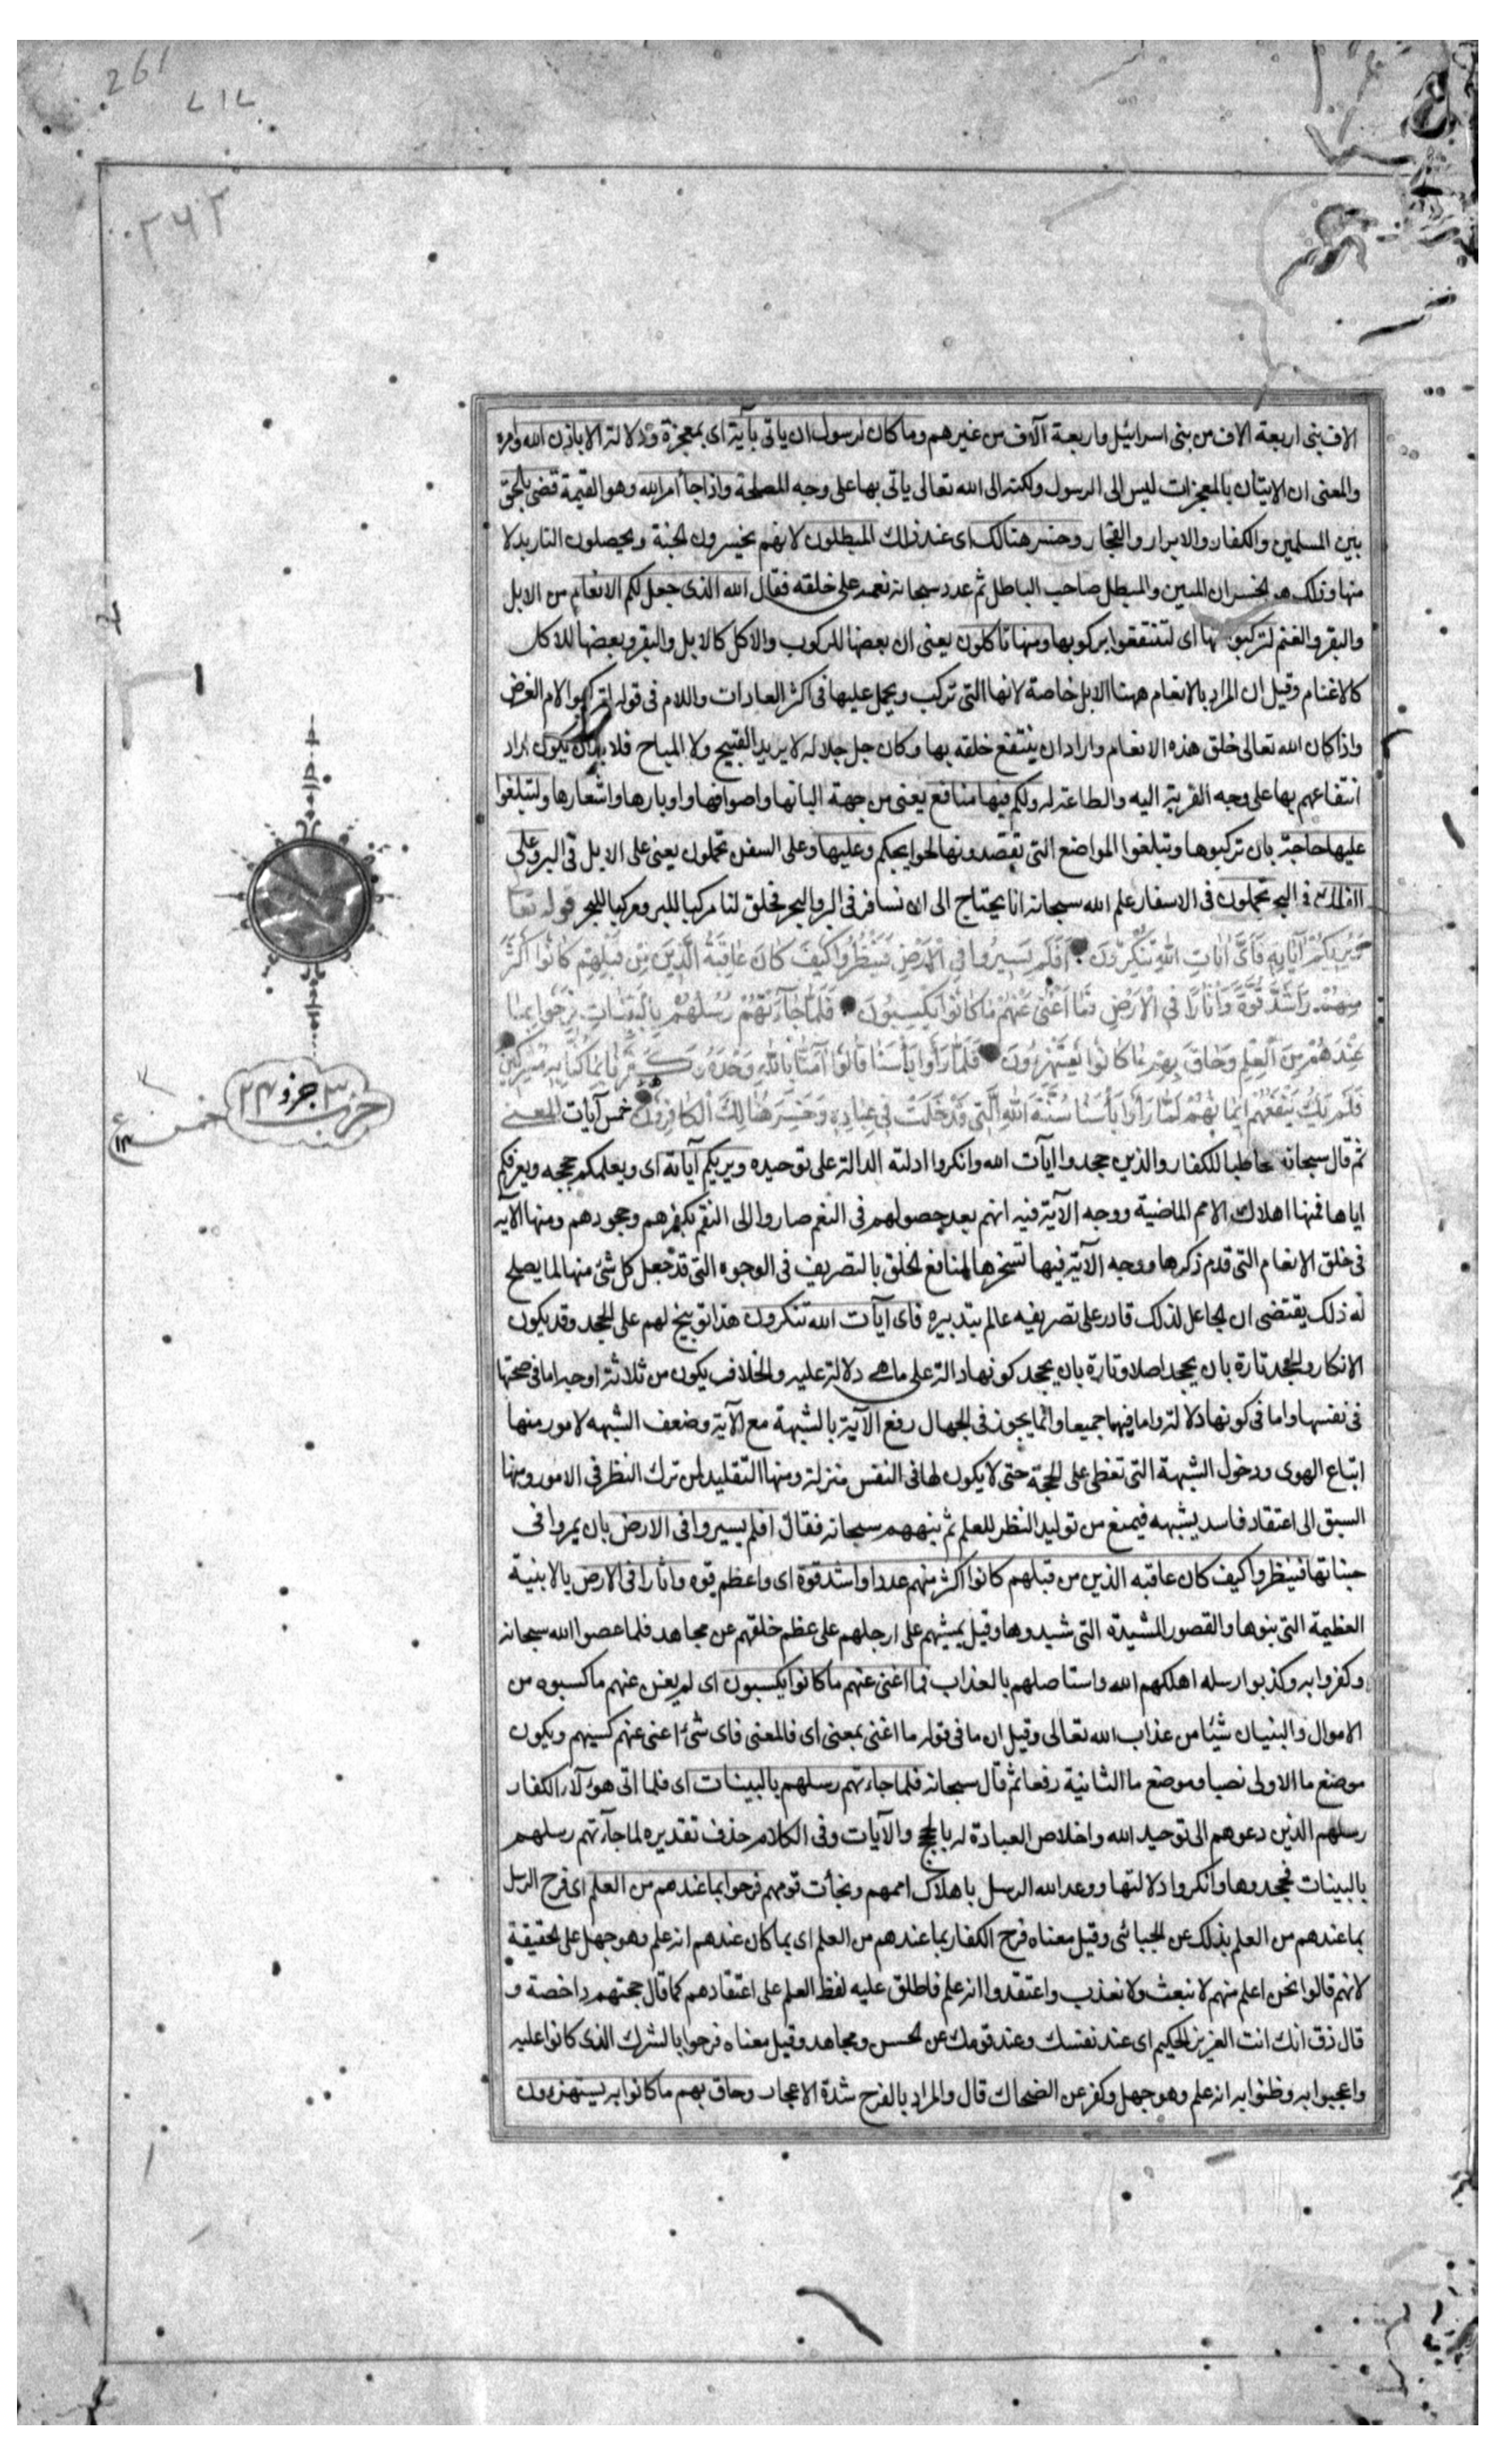 261
الاف بنى اربعة الاف من بنى اسرائيل واربعة آلاف من غيرهم وما كان لرسول ان ياتى بآية اى بمعجزة ودلالة الا باذن الله وامره
والمعنى ان الاتيان بالمعجزات ليس الى الرسول ولكنه الى الله تعالى ياتى بها على وجه المصلحة واذا جآ امر الله وهو القيمة قضى بالحق
بين المسلمين والكفار والابرار والفجار وخسر هنالك اى عند ذلك المبطلون لانهم يخسرون الجنة ويحصلون النار بدلا
منها وذلك هو الخسران المبين والمبطل صاحب الباطل ثم عدد سبحانه نعمه على خلقه فقال الله الذى جعل لكم الانعام من الابل
والبقر والغنم لتركبوا منها اى لتنتفعوا بركوبها ومنها تاكلون يعنى ان بعضها للركوب والاكل كالابل والبقر وبعضها للاكل
كالاغنام وقيل ان المراد بالانعام ههنا الابل خاصة لانها التى تركب ويحمل عليها فى اكثر العادات واللام فى قوله لتركبوا لام الغرض
واذا كان الله تعالى خلق هذه الانعام واراد ان ينتفع خلقه بها وكان جل جلاله لا يريد القبيح ولا المباح فلا بد ان يكون اراد
انتفاعهم بها على وجه القربة اليه والطاعة له ولكم فيها منافع يعنى من جهة البانها واصوافها واوبارها واشعارها ولتبلغوا
عليها حاجة بان تركبوها وتبلغوا المواضع التى تقصدونها لحوايجكم وعليها وعلى السفن تحملون يعنى على الابل فى البر وعلى
الفلك فى البحر تحملون فى الاسفار علم الله سبحانه انا نحتاج الى ان نسافر فى البر والبحر فخلق لنا مركبا للبر ومركبا للبحر قوله تعا
وَيُرِيكُمْ آيَاتِهِ فَأَىَّ ايَاتِ اللهِ تُنْكِرُونَ أَفَلَمْ يَسِيرُوا فِى الْأَرْضِ فَيَنْظُرُوا كَيْفَ كَانَ عَاقِبَةُ الَّذِينَ مِنْ قَبْلِهِمْ كَانُوا أَكْثَرَ
مِنْهُمْ وَأَشَدَّ قُوَّةً وَآثَارًا فِى الْأَرْضِ فَمَا أَغْنَى عَنْهُمْ مَا كَانُوا يَكْسِبُونَ فَلَمَّا جَآءَتْهُمْ رُسُلُهُمْ بِالْبَيِّنَاتِ فَرِحُوا بِمَا
عِنْدَهُمْ مِنَ الْعِلْمِ وَحَاقَ بِهِمْ مَا كَانُوا بِهِ يَسْتَهْزِءُونَ فَلَمَّا رَأَوْا بَأْسَنَا قَالُوا آمَنَّا بِاللهِ وَحْدَهُ وَكَفَرْنَا بِمَا كُنَّا بِهِ مُشْرِكِينَ
فَلَمْ يَكُ يَنْفَعُهُمْ إِيمَانُهُمْ لَمَّا رَأَوْا بَأْسَنَا سُنَّةَ اللهِ الَّتِى قَدْ خَلَتْ فِى عِبَادِهِ وَخَسِرَ هُنَالِكَ الْكَافِرُونَ خمس آيات المعنى
ثم قال سبحانه مخاطبا للكفار والذين جحدوا آيات الله وانكروا ادلته الدالة على توحيده ويريكم آياته اى ويعلمكم حججه ويعرفكم
اياها فمنها اهلاك الامم الماضية ووجه الآية فيه انهم بعد حصولهم فى النعم صاروا الى النقم بكفرهم وجحودهم ومنها الآية
فى خلق الانعام التى قدم ذكرها ووجه الآية فيها تسخيرها لمنافع الخلق بالتصريف فى الوجوه التى قد جعل كل شئ منها لما يصلح
له ذلك يقتضى ان الجاعل لذلك قادر على تصريفه عالم بتدبيره فاى آيات الله تنكرون هذا توبيخ لهم على الجحد وقد يكون
الانكار والجحد تارة بان يجحد اصلا وتارة بان يجحد كونها دالة على ما هى دلالة عليه والخلاف يكون من ثلاثة اوجه اما فى صحتها
فى نفسها واما فى كونها دلالة واما فيهما جميعا وانما يجوز فى الجهال رفع الآية بالشبهة مع الآية وضعف الشبهه لامور منها
اتباع الهوى ودخول الشبهة التى تغطى على الحجة حتى لا يكون لها فى النفس منزلة ومنها التقليد لمن ترك النظر فى الامور ومنها
السبق الى اعتقاد فاسد يشبهه فيمنع من توليد النظر للعلم ثم ينبههم سبحانه فقال افلم يسيروا فى الارض بان يمروا فى
جنباتها فينظروا كيف كان عاقبه الذين من قبلهم كانوا اكثر منهم عددا واشد قوة اى واعظم قوه واثارا فى الارض بالابنية
العظيمة التى بنوها والقصور المشيدة التى شيدوها وقيل بمشيهم على ارجلهم على عظم خلقهم عن مجاهد فلما عصوا الله سبحانه
وكفروا به وكذبوا رسله اهلكهم الله واستاصلهم بالعذاب فما اغنى عنهم ما كانوا يكسبون اى لم يغن عنهم ما كسبوه من
الاموال والبنيان شيئا من عذاب الله تعالى وقيل ان ما فى قوله ما اغنى بمعنى اى فالمعنى فاى شئ اغنى عنهم كسبهم ويكون
موضع ما الاولى نصبا وموضع ما الثانية رفعا ثم قال سبحانه فلما جاءتهم رسلهم بالبينات اى فلما اتى هؤلاء الكفار
رسلهم الذين دعوهم الى توحيد الله واخلاص العبادة له بالحجج والآيات وفى الكلام حذف تقديره لما جآءتهم رسلهم
بالبينات فجحدوها وانكروا دلالتها ووعد الله الرسل باهلاك اممهم ونجات قومهم فرحوا بما عندهم من العلم اى فرح الرسل
بما عندهم من العلم بذلك عن الجبائى وقيل معناه فرح الكفار بما عندهم من العلم اى بما كان عندهم انه علم وهو جهل على الحقيقة
لانهم قالوا نحن اعلم منهم لا نبعث ولا نعذب واعتقدوا انه علم فاطلق عليه لفظ العلم على اعتقادهم كما قال حجتهم داحضة و
قال ذق انك انت العزيز الحكيم اى عند نفسك وعند قومك عن الحسن ومجاهد وقيل معناه فرحوا بالشرك الذى كانوا عليه
واعجبوا به وظنوا به انه علم وهو جهل وكفر عن الضحاك قال والمراد بالفرح شدة الاعجاب وحاق بهم ما كانوا به يستهزءون
٢٦٢
حزب ٣ جزو ٢٤
خمس